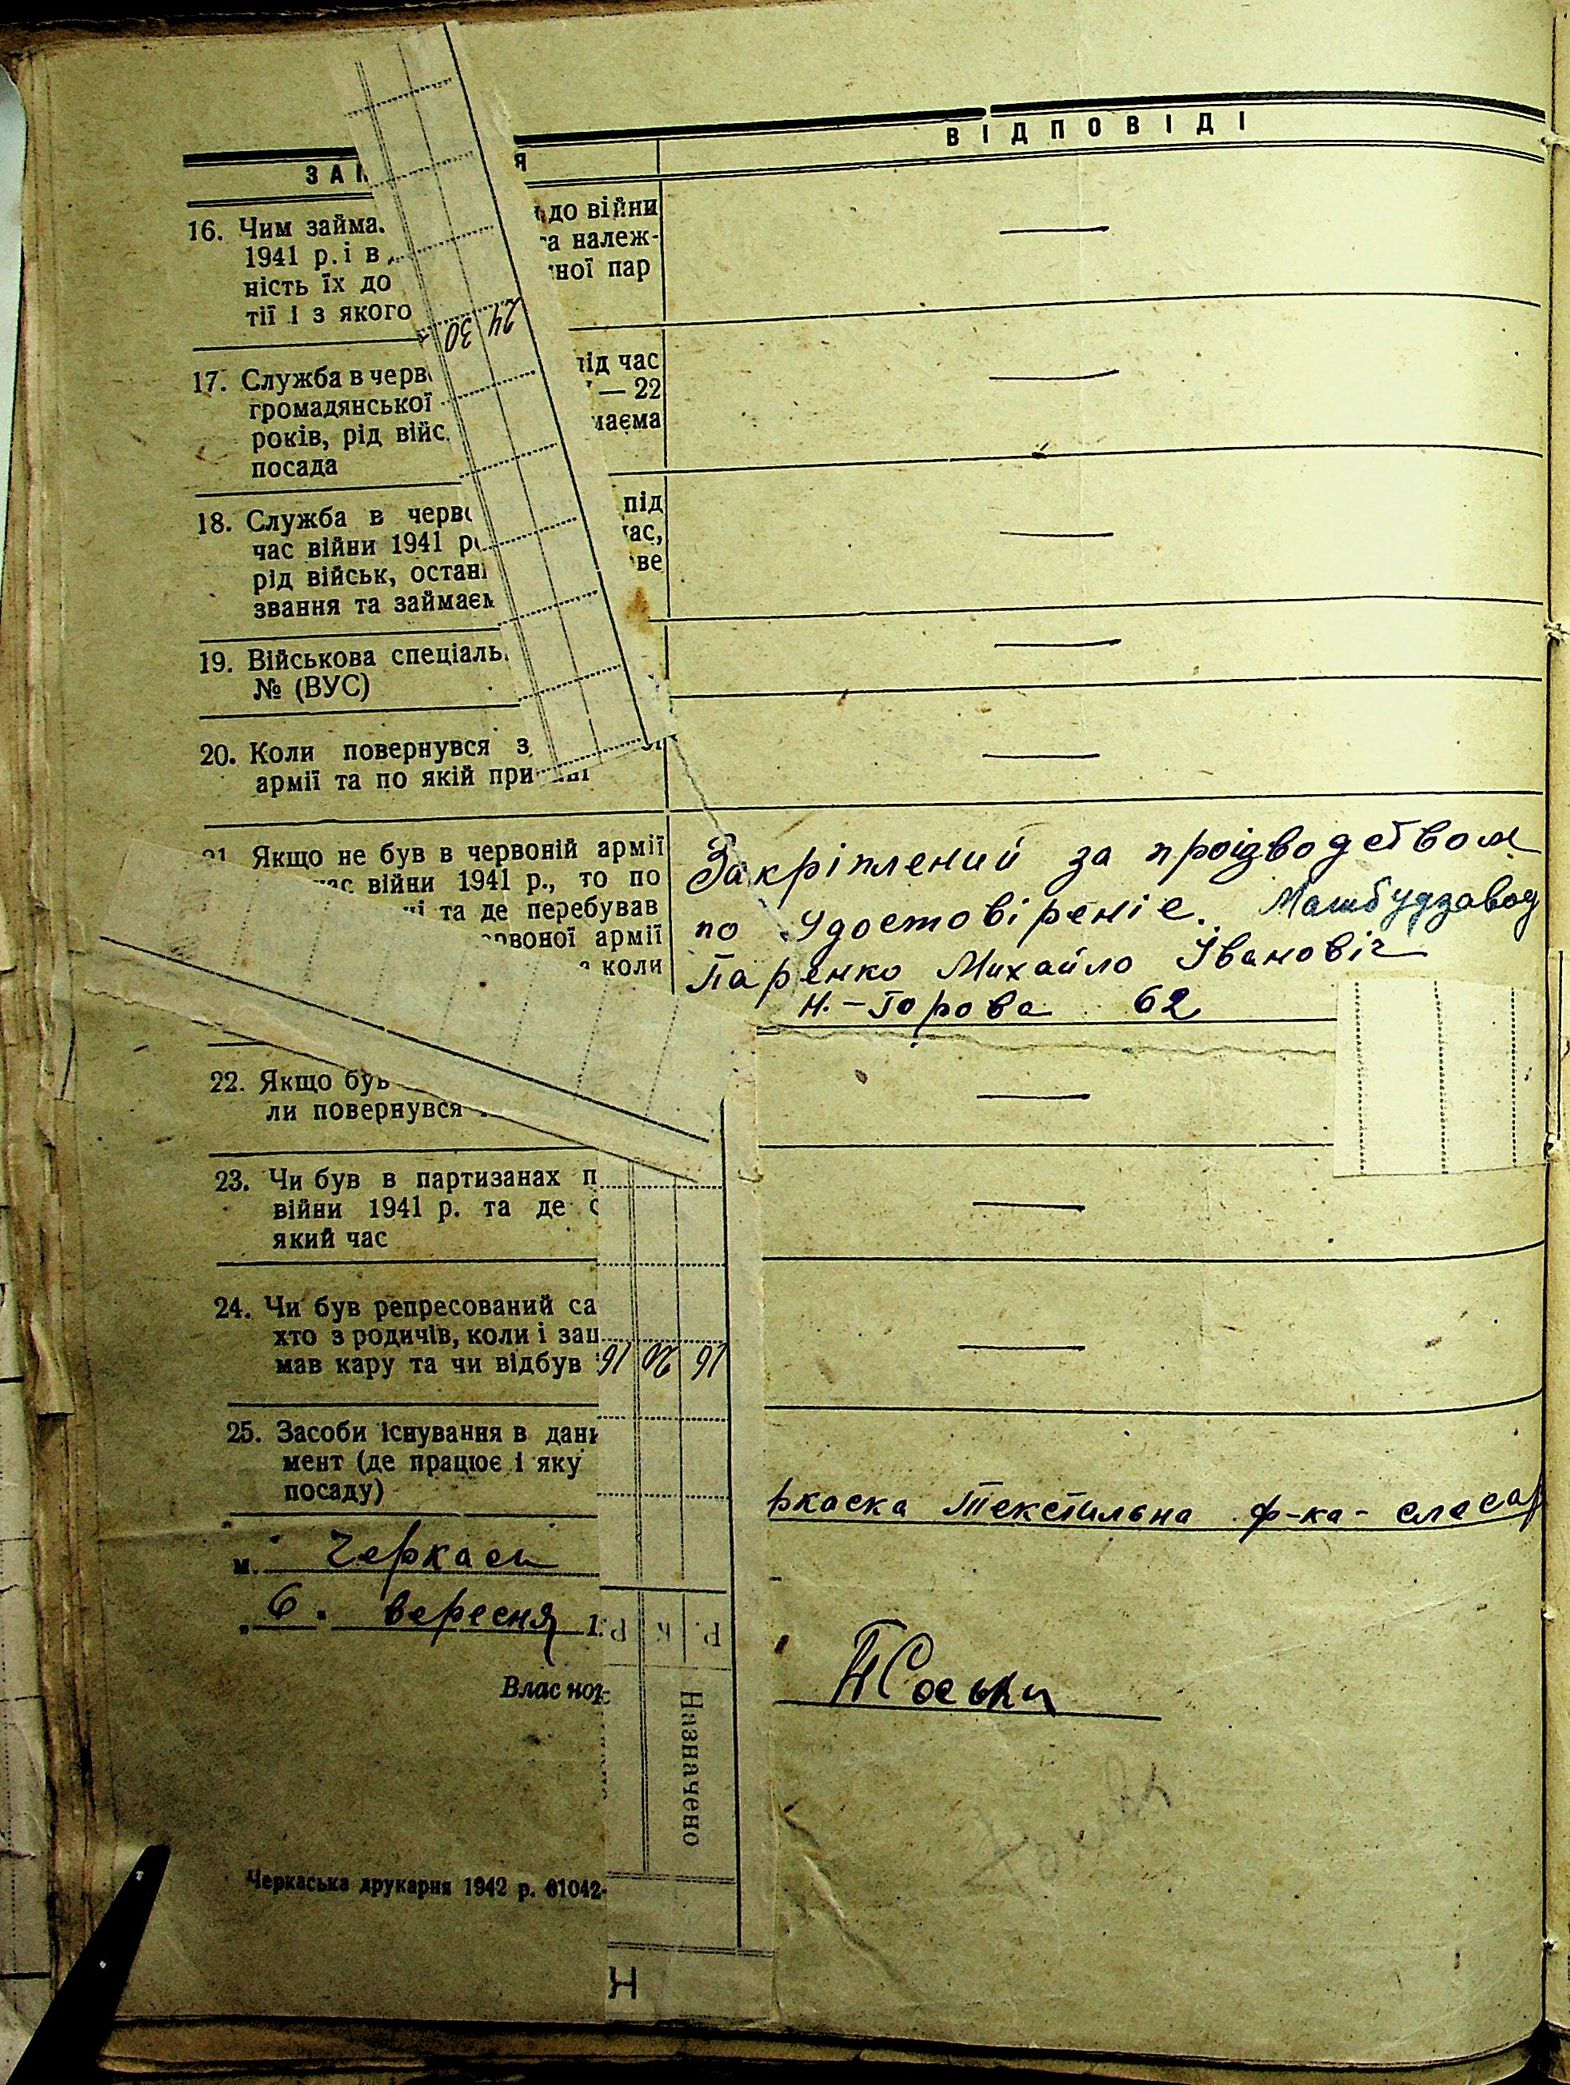 ВІДПОВІДІ
16. Чим займа до війни
1941 р. і в та належ-
ність їх до ної пар
тії і з якого
24 30
17. Служба в черв під час
громадянської — 22
років, рід війс маєма
посада
18. Служба в черво під
час війни 1941 ро час,
рід військ, остан ве
звання та займаєм
19. Військова спеціаль
№ (ВУС)
20. Коли повернувся з
армії та по якій при
21. Якщо не був в червоній армії
час війни 1941 р., то по
та де перебував
червоної армії
коли
Закріплений за проізводством
по Удостовіреніє. Машбудзавод
Паренко Михайло Івановіч
Н.-Горова 62
22. Якщо був
ли повернувся
23. Чи був в партизанах п
війни 1941 р. та де с
який час
24. Чи був репресований са
хто з родичів, коли і защ
мав кару та чи відбув
16 20 16
25. Засоби існування в дан
мент (де працює і яку
посаду)
ркаска Текстильна ф-ка - слесар
м. Черкаси
„6. вересня 1
Р. К Р
Власнор
Назначено
Черкаська друкарня 1942 р. 61042-
Н